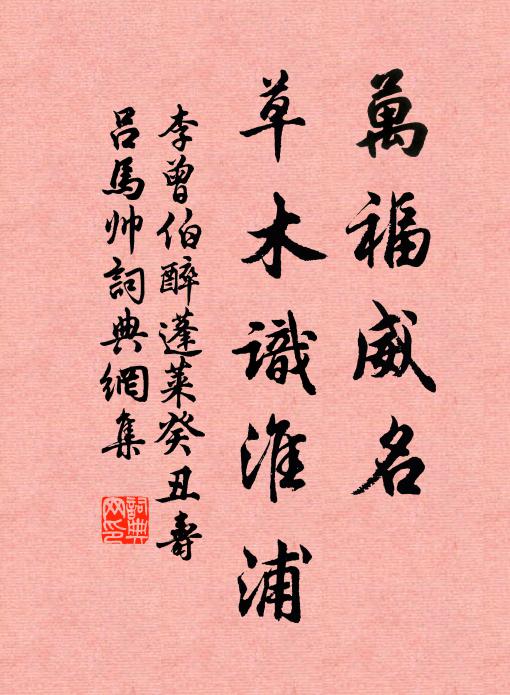 萬福威名
草木識淮浦
李曾伯醉蓬萊癸丑壽
呂馬帅詞典網集
詞典
网印